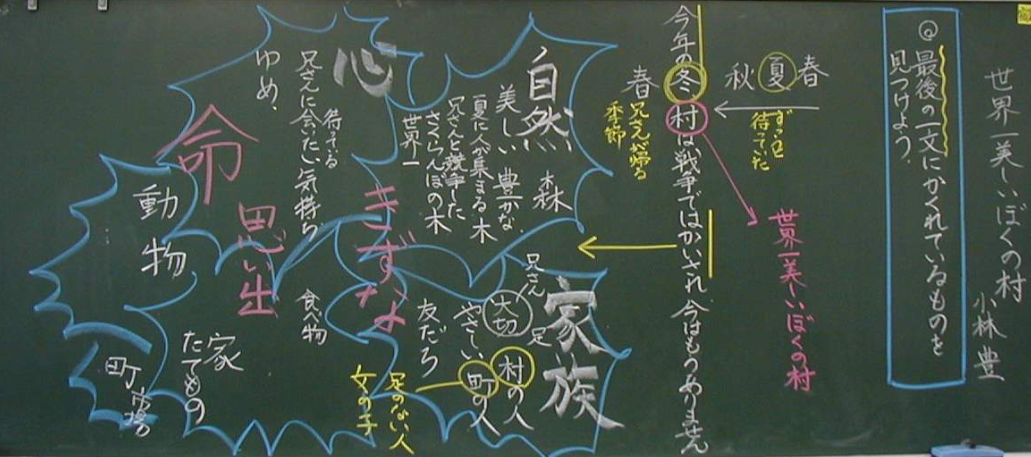 世界一美しいぼくの村
小林豊
@最後の一文にかくれているものを
見つけよう。
春
夏
秋
ずっと
待っていた
世界一美しいぼくの村
今年の冬 村は戦争ではかいされ 今はもうありません
春
兄さんが帰る
季節
自然
森
美しい 豊かな
夏に人が集まる木
兄さんと競争した
さくらんぼの木
世界一
心
待っている
兄さんに会いたい気持ち
ゆめ、
家族
兄さん
足
大切
村の人
やさしい
町の人
友だち
足のない人
女の子
きずな
食べ物
命
思い出
動物
家
たてもの
町
市場